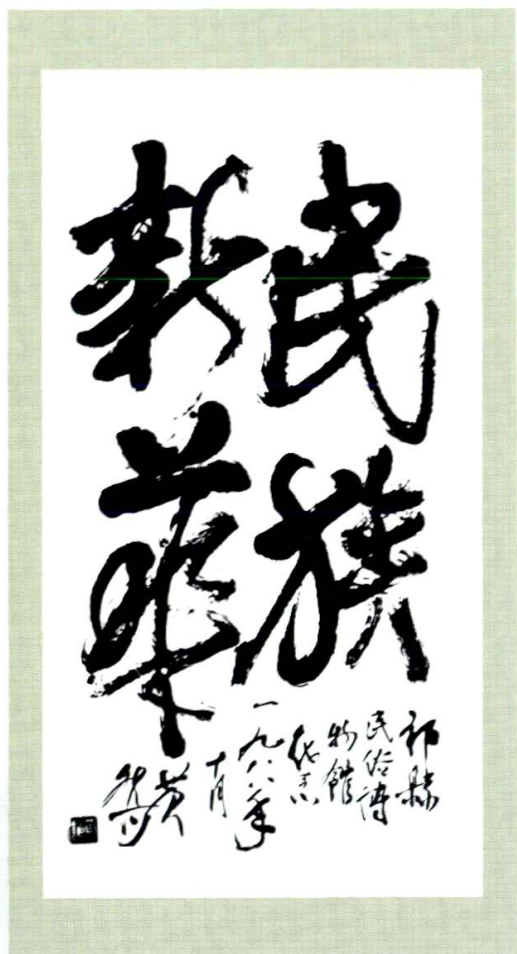 民族
新
祁縣
民俗博
物館
一九八八年
十月
黄